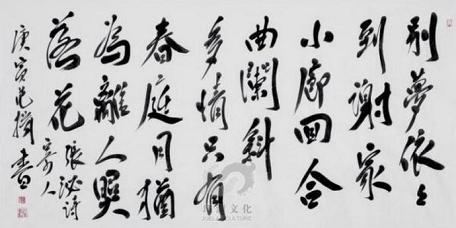 别夢依々
到謝家
小廊回合
曲闌斜
多情只有
春庭月猶
為離人照
落花
張泌詩
寄人
庚寅范書
文化